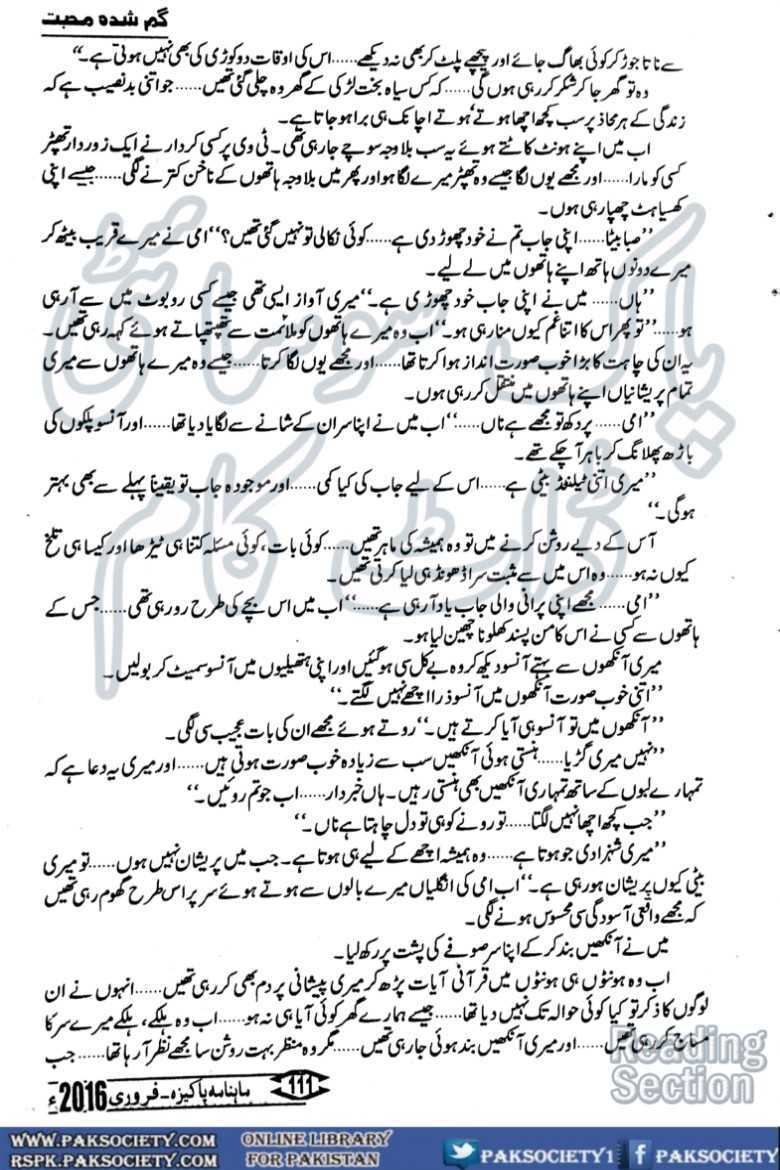 گم شدہ محبت
سے ناتا جوڑ کر کوئی بھاگ جائے اور پیچھے پلٹ کر بھی نہ دیکھے......اس کی اوقات دو کوڑی کی بھی نہیں ہوتی ہے۔‘‘
وہ تو گھر جا کر شکر کر رہی ہوں گی......کہ کس سیاہ بخت لڑکی کے گھر وہ چلی گئی تھیں......جو اتنی بدنصیب ہے کہ
زندگی کے ہر محاذ پر سب کچھ اچھا ہوتے‘ ہوتے اچانک ہی برا ہو جاتا ہے۔
اب میں اپنے ہونٹ کاٹتے ہوئے یہ سب بلاوجہ سوچے جا رہی تھی۔ ٹی وی پر کسی کردار نے ایک زوردار تھپڑ
کسی کو مارا......اور مجھے یوں لگا جیسے وہ تھپڑ میرے لگا ہو اور پھر میں بلاوجہ ہاتھوں کے ناخن کترنے لگی......جیسے اپنی
کھسیاہٹ چھپا رہی ہوں۔
’’صبا بیٹا......اپنی جاب تم نے خود چھوڑ دی ہے......کوئی نکالی تو نہیں گئی تھیں؟‘‘ امی نے میرے قریب بیٹھ کر
میرے دونوں ہاتھ اپنے ہاتھوں میں لے لیے۔
’’ہاں......میں نے اپنی جاب خود چھوڑی ہے۔‘‘ میری آواز ایسی تھی جیسے کسی روبوٹ میں سے آ رہی
ہو......’’تو پھر اس کا اتنا غم کیوں منا رہی ہو۔‘‘ اب وہ میرے ہاتھوں کو ملائمت سے تھپتھپاتے ہوئے کہہ رہی تھیں۔
یہ ان کی چاہت کا بڑا خوب صورت انداز ہوا کرتا تھا......اور مجھے یوں لگا کرتا......جیسے وہ میرے ہاتھوں سے میری
تمام پریشانیاں اپنے ہاتھوں میں منتقل کر رہی ہوں۔
’’امی......پر دکھ تو مجھے ہے ناں......‘‘ اب میں نے اپنا سر ان کے شانے سے لگا یا دیا تھا......اور آنسو پلکوں کی
باڑھ پھلانگ کر باہر آ چکے تھے۔
’’میری اتنی ٹیلنٹڈ بیٹی ہے......اس کے لیے جاب کی کیا کمی......اور موجودہ جاب تو یقیناً پہلے سے بھی بہتر
ہو گی۔‘‘
آس کے دیے روشن کرنے میں تو وہ ہمیشہ کی ماہر تھیں......کوئی بات، کوئی مسئلہ کتنا ہی ٹیڑھا اور کیسا ہی تلخ
کیوں نہ ہو......وہ اس میں سے مثبت سرا ڈھونڈ ہی لیا کرتی تھیں۔
’’امی......مجھے اپنی پرانی والی جاب یاد آ رہی ہے......‘‘ اب میں اس بچے کی طرح رو رہی تھی......جس کے
ہاتھوں سے کسی نے اس کا من پسند کھلونا چھین لیا ہو۔
میری آنکھوں سے بہتے آنسو دیکھ کر وہ بے کل سی ہو گئیں اور اپنی ہتھیلیوں میں آنسو سمیٹ کر بولیں۔
’’اتنی خوب صورت آنکھوں میں آنسو ذرا اچھے نہیں لگتے۔‘‘
’’آنکھوں میں تو آنسو ہی آیا کرتے ہیں۔‘‘ روتے ہوئے مجھے ان کی بات عجیب سی لگی۔
’’نہیں میری گڑیا......ہنستی ہوئی آنکھیں سب سے زیادہ خوب صورت ہوتی ہیں......اور میری یہ دعا ہے کہ
تمہارے لبوں کے ساتھ تمہاری آنکھیں بھی ہنستی رہیں۔ ہاں خبردار......اب جو تم روئیں۔‘‘
’’جب کچھ اچھا نہیں لگتا......تو رونے کو ہی تو دل چاہتا ہے ناں۔‘‘
’’میری شہزادی جو ہوتا ہے......وہ ہمیشہ اچھے کے لیے ہی ہوتا ہے۔ جب میں پریشان نہیں ہوں......تو میری
بیٹی کیوں پریشان ہو رہی ہے۔‘‘ اب امی کی انگلیاں میرے بالوں سے ہوتے ہوئے سر پر اس طرح گھوم رہی تھیں
کہ مجھے واقعی آسودگی سی محسوس ہونے لگی۔
میں نے آنکھیں بند کر کے اپنا سر صوفے کی پشت پر رکھ لیا۔
اب وہ ہونٹوں ہی ہونٹوں میں قرآنی آیات پڑھ کر میری پیشانی پر دم بھی کر رہی تھیں......انہوں نے ان
لوگوں کا ذکر تو کیا کوئی حوالہ تک نہیں دیا تھا......جیسے ہمارے گھر کوئی آیا ہی نہ ہو......اب وہ ہلکے، ہلکے میرے سر کا
مساج کر رہی تھیں......اور میری آنکھیں بند ہوئی جا رہی تھیں......مگر وہ منظر بہت روشن سا مجھے نظر آ رہا تھا......جب
ماہنامہ پاکیزہ۔ فروری 2016ء 111
پاک سوسائٹی
ڈاٹ کام
Reading
Section
WWW.PAKSOCIETY.COM ONLINE LIBRARY PAKSOCIETY1 PAKSOCIETY
RSPK.PAKSOCIETY.COM FOR PAKISTAN